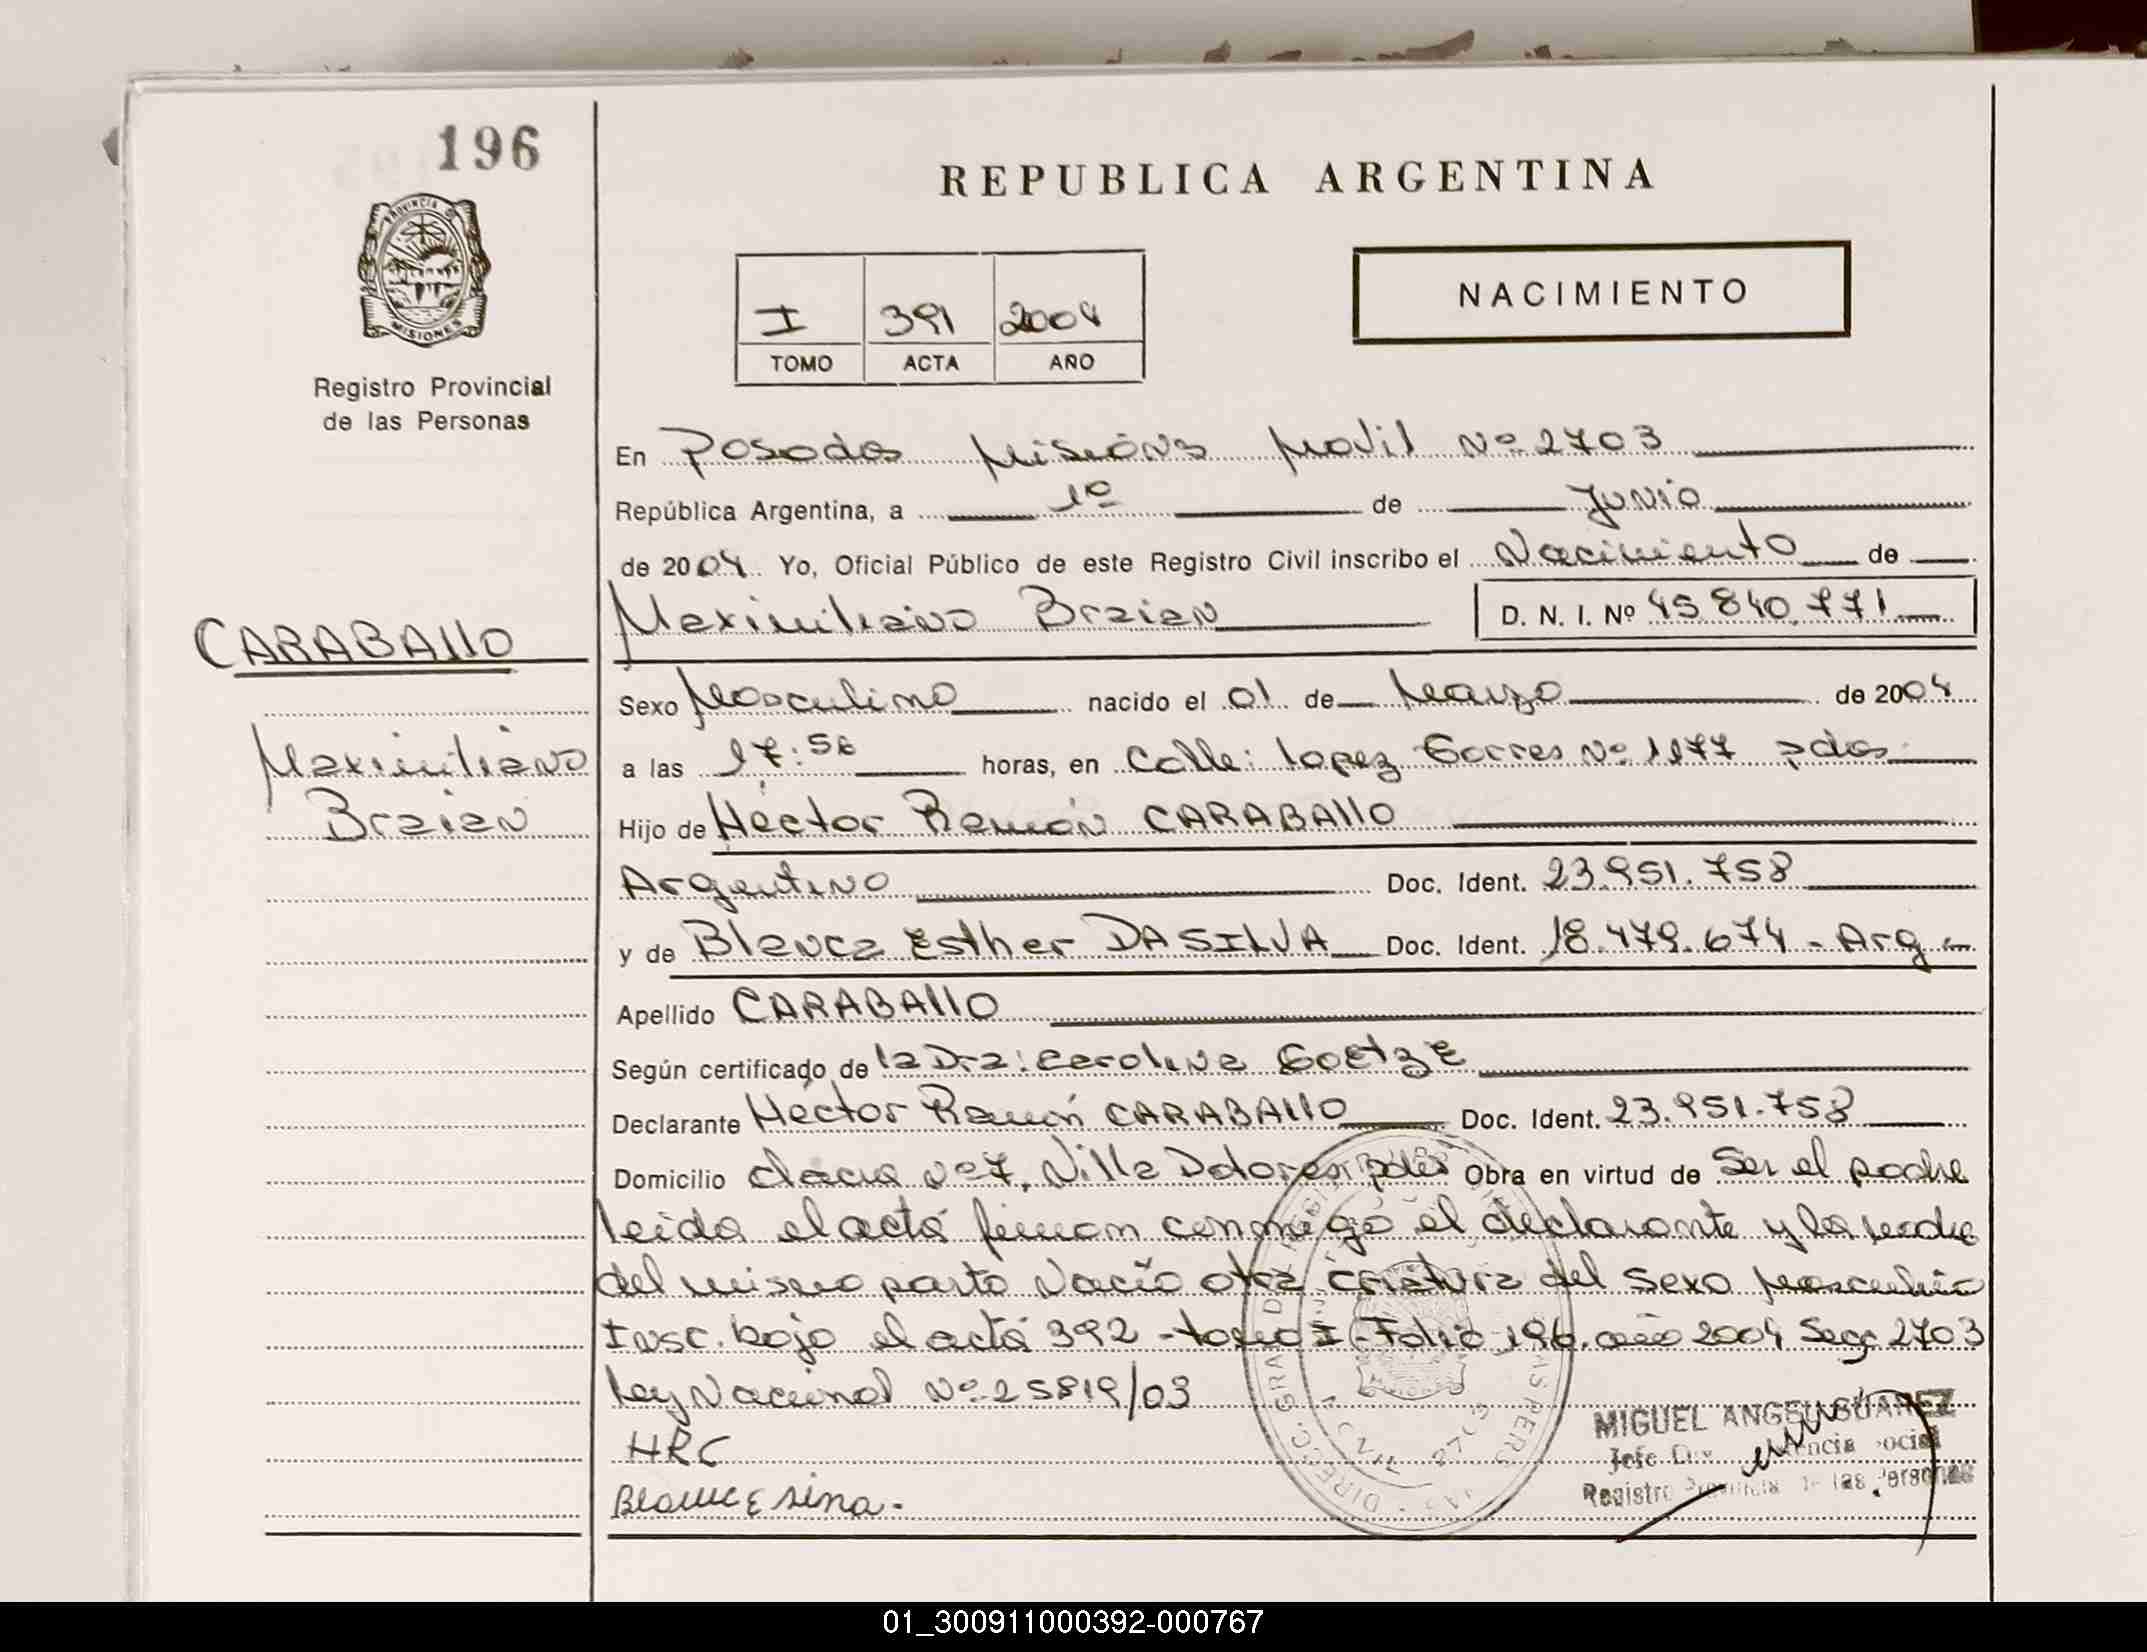 196
REPUBLICA ARGENTINA
PROVINCIA DE
MISIONES
NACIMIENTO
I 391 2004
TOMO ACTA AÑO
Registro Provincial
de las Personas
En Posadas Misiones Movil Nº 2703
República Argentina, a 1º de Junio
de 2004. Yo, Oficial Público de este Registro Civil inscribo el Nacimiento de
Maximiliano Braian D. N. I. Nº 45.840.771
CARABAllO
Sexo Masculino nacido el 01 de Marzo de 2004
Maximiliano
Braian
a las 17:56 horas, en Calle: lopez Torres Nº 1177 pdas
Hijo de Héctor Ramón CARABAllO
Argentino Doc. Ident. 23.951.758
y de Blanca Esther DA SILVA Doc. Ident. 18.479.674 - Arg
Apellido CARABAllO
Según certificado de la Dra: Carolina Goetze
Declarante Héctor Ramón CARABAllO Doc. Ident. 23.951.758
Domicilio chacra nº 7, Villa Dolores pdas Obra en virtud de Ser el padre
leida el acta firman conmigo el declarante y la madre
del mismo parto Nacio otra criatura del sexo Masculino
Insc. bajo el acta 392 - tomo I - Folio 196, año 2004 Secc 2703
ley Nacional Nº 25819/03
HRC
MIGUEL ANGEL SUAREZ
Registro Provincial de las Personas
01_300911000392-000767